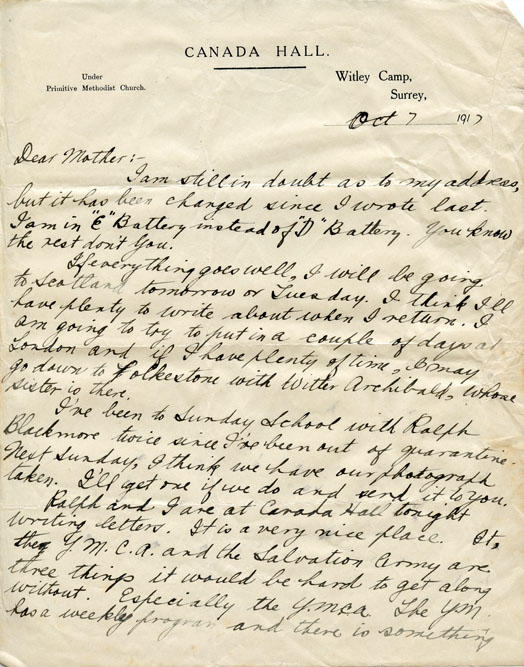 CANADA HALL.
Under
Primitive Methodist Church.
Witley Camp,
Surrey,
Oct 7 1917
Dear Mother:-
I am still in doubt as to my address,
but it has been changed since I wrote last.
I am in "E" Battery instead of "D" Battery. You know
the rest don't you.
If everything goes well, I will be going
to Scotland tomorrow or Tuesday. I think I'll
have plenty to write about when I return. I
am going to try to put in a couple of days at
London and if I have plenty of time, I may
go down to Folkestone with Witter Archibald, whose
sister is there.
I've been to Sunday School with Ralph
Blackmore twice since I've been out of quarantine.
Next Sunday, I think we have our photograph
taken. I'll get one if we do and send it to you.
Ralph and I are at Canada Hall tonight
writing letters. It is a very nice place. It,
the Y.M.C.A. and the Salvation Army are
three things it would be hard to get along
without. Especially the Y.M.C.A. The Y.M.
has a weekly program and there is something